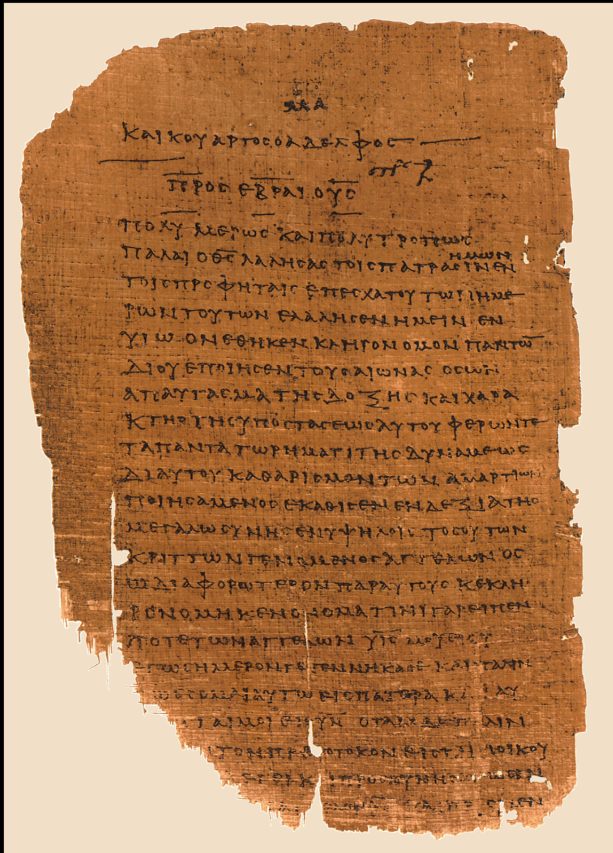 ΚΑΙ ΚΟΥΑΡΤΟϹ Ο ΑΔΕΛΦΟϹ
ΠΡΟϹ ΕΒΡΑΙΟΥϹ
ΠΟΛΥΜΕΡΩϹ ΚΑΙ ΠΟΛΥΤΡΟΠΩϹ
ΗΜΩΝ
ΠΑΛΑΙ Ο Θ̅Ϲ̅ ΛΑΛΗϹΑϹ ΤΟΙϹ ΠΑΤΡΑϹΙΝ ΕΝ
ΤΟΙϹ ΠΡΟΦΗΤΑΙϹ ΕΠ ΕϹΧΑΤΟΥ ΤΩΝ ΗΜΕ
ΡΩΝ ΤΟΥΤΩΝ ΕΛΑΛΗϹΕΝ ΗΜΕΙΝ ΕΝ
ΥΙΩ ΟΝ ΕΘΗΚΕΝ ΚΛΗΡΟΝΟΜΟΝ ΠΑΝΤΩ̅
ΔΙ ΟΥ ΕΠΟΙΗϹΕΝ ΤΟΥϹ ΑΙΩΝΑϹ ΟϹ ΩΝ
ΑΠΑΥΓΑϹΜΑ ΤΗϹ ΔΟΞΗϹ ΚΑΙ ΧΑΡΑ
ΚΤΗΡ ΤΗϹ ΥΠΟϹΤΑϹΕΩϹ ΑΥΤΟΥ ΦΕΡΩΝ ΤΕ
ΤΑ ΠΑΝΤΑ ΤΩ ΡΗΜΑΤΙ ΤΗϹ ΔΥΝΑΜΕΩϹ
ΔΙ ΑΥΤΟΥ ΚΑΘΑΡΙϹΜΟΝ ΤΩΝ ΑΜΑΡΤΙΩΝ
ΠΟΙΗϹΑΜΕΝΟϹ ΕΚΑΘΙϹΕΝ ΕΝ ΔΕΞΙΑ ΤΗϹ
ΜΕΓΑΛΩϹΥΝΗϹ ΕΝ ΥΨΗΛΟΙϹ ΤΟϹΟΥΤΩΝ
ΚΡΙΤΤΩΝ ΓΕΝΟΜΕΝΟϹ ΑΓΓΕΛΩΝ ΟϹ
Ω ΔΙΑΦΟΡΩΤΕΡΟΝ ΠΑΡ ΑΥΤΟΥϹ ΚΕΚΛΗ
ΡΟΝΟΜΗΚΕΝ ΟΝΟΜΑ ΤΙΝΙ ΓΑΡ ΕΙΠΕΝ
ΠΟΤΕ ΤΩΝ ΑΓΓΕΛΩΝ ΥΙϹ ΜΟΥ ΕΙ ϹΥ
ΕΓΩ ϹΗΜΕΡΟΝ ΓΕΓΕΝΝΗΚΑ ϹΕ ΚΑΙ ΠΑΛΙΝ
ΕϹΟΜΑΙ ΑΥΤΩ ΕΙϹ ΠΑΤΕΡΑ ΚΑΙ ΑΥ
ΤΑΙ ΜΟΙ ΕΙϹ ΥΝ ΟΤΑΝ ΔΕ ΠΑΛΙΝ
ΤΟΝ ΠΡΩΤΟΤΟΚΟΝ ΕΙϹ ΤΗΝ ΟΙΚΟΥ